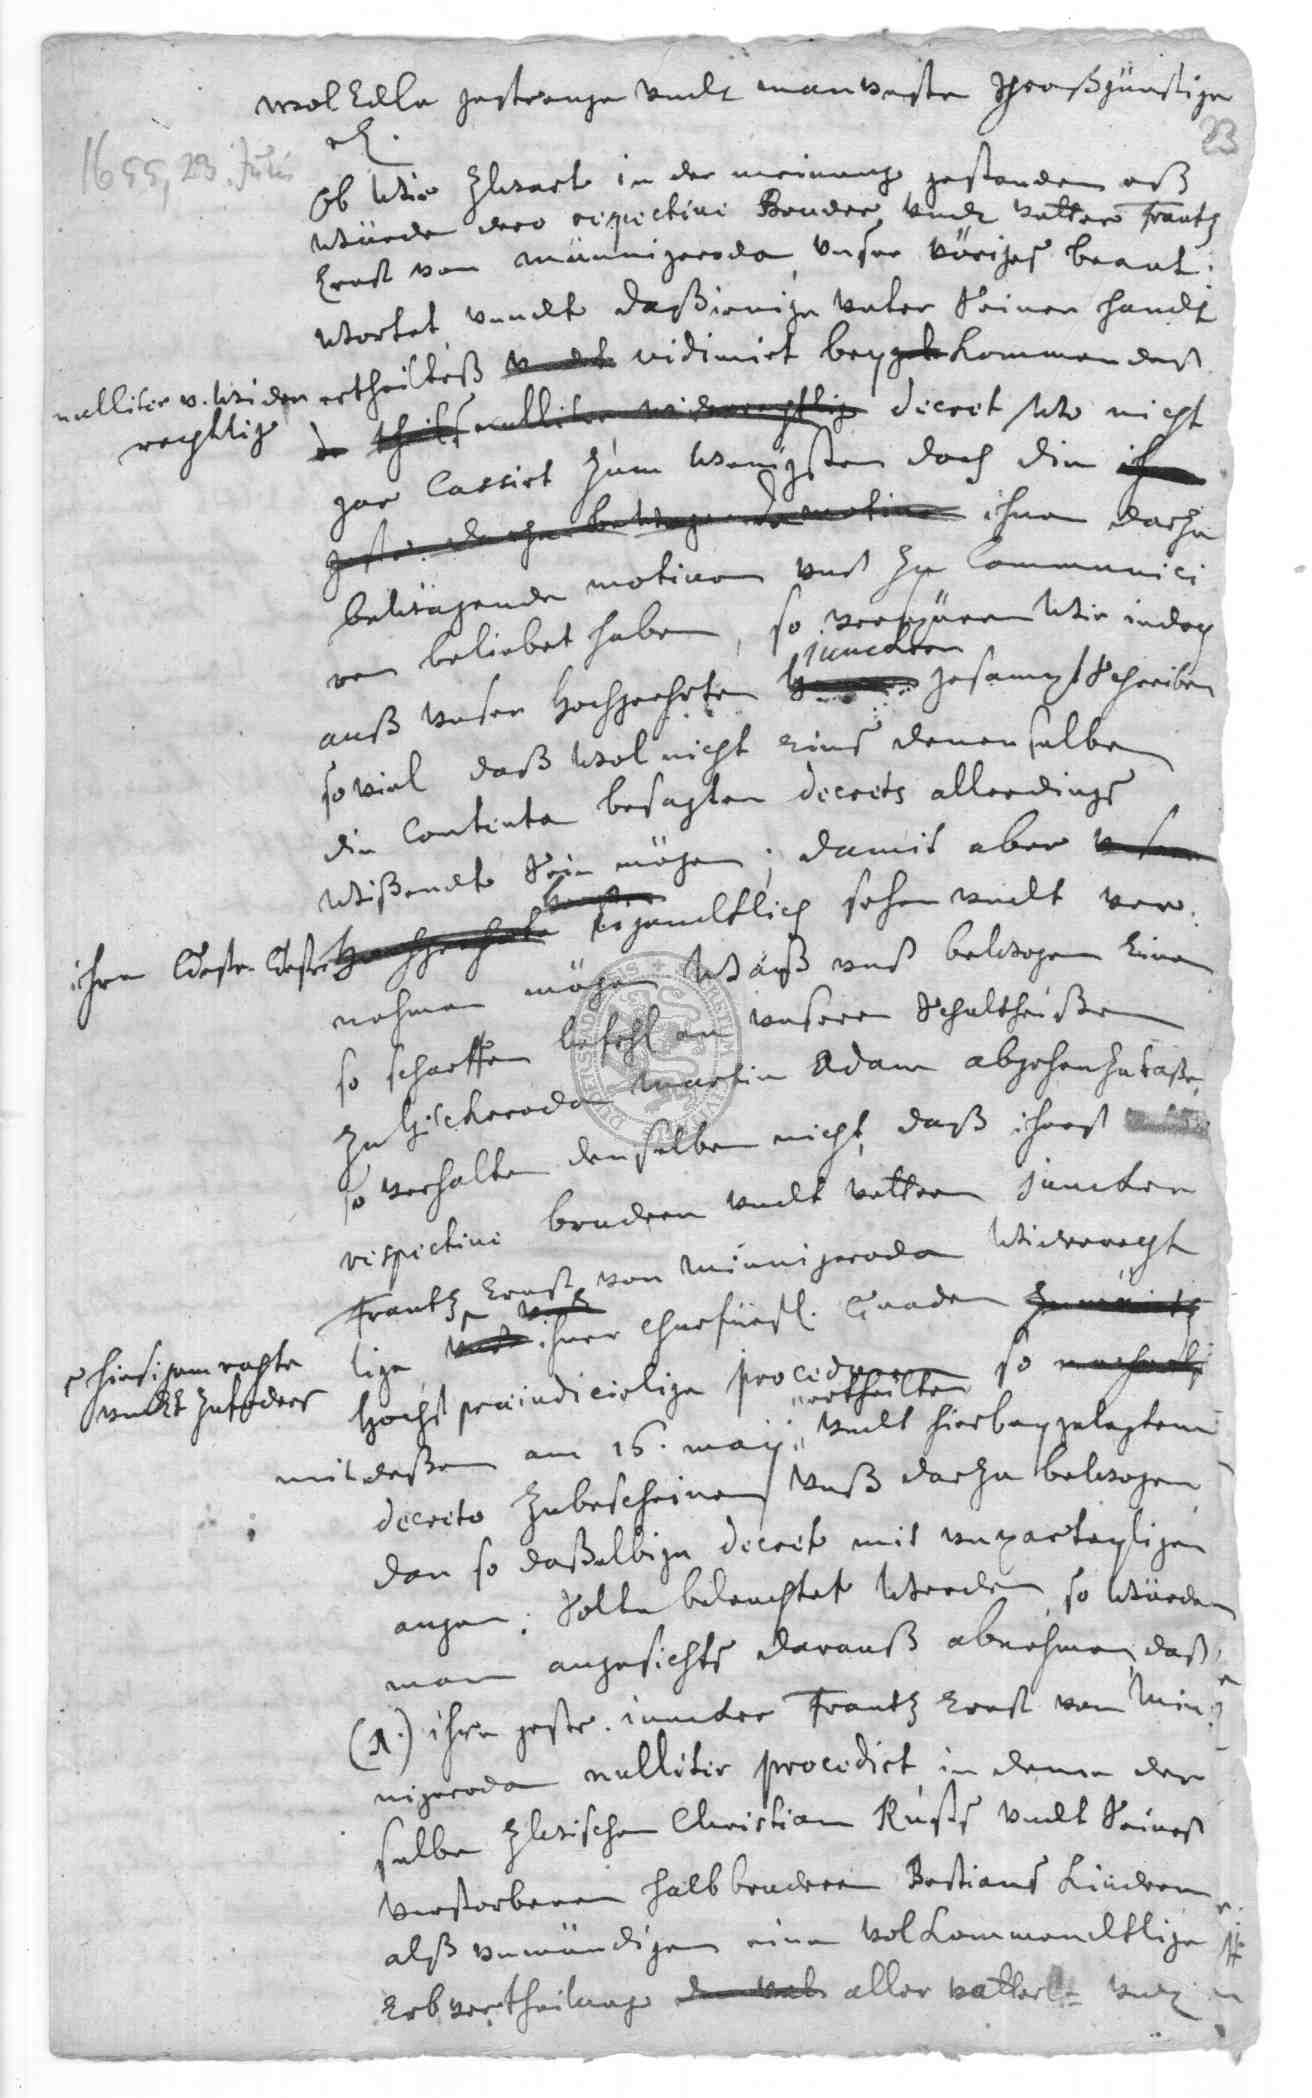 wol Edle gestrenge vndt manveste Großgünstige
23
1655, 23. Julii
ob wir zwart in der meinung gestanden eß
würde dero respective Bruder vndt Vetter Frantz
Ernst von Münnigeroda vnser voriges beant:
wortet vnndt daßienige vnter Seiner handt
nulliter v. wider ertheilteß vndt vidimirt beykommendeß
rechtlig theilß nulliter widerrechtlig decret wo nicht
gar Cassirt zum wenigsten doch die
ihme darzu
bewägende motiven vnß zu Communici
ren beliebet haben, so verspüren wir indeß
juncker
auß vnser Hochgeehrten gesampt Schreiben
so viel daß wol nicht eins denenselben
die Contenta besagten decrets allerdings
wißendt Sein mögen; damit aber
ihre eigendtlich sehen vndt ver:
nehmen mögen waß vnß bewogen Einen
so scharffen befehl an vnseren Schultheißen
zu Gickeroda Martin Adam abgehen zu laßen,
so verhalten denselben nicht, daß ihreß
respective brudern vndt vettern juncker
Frantz Ernst von Minnigeroda widerrecht
lige ihrer Churfürstl. Gnaden
hiesigem rechte
vndt zufoders
Höchst praeiudicirlige proceduren so
ertheilten
mit deßen am 16. may vndt hierbeygelegtem
decreto zubescheinen vnß darzu bewogen,
dan so daßelbige decret mit vnparteyligen
augen Solte beleuchtet werden, so würde
man angesichts darauß abnehmen, daß
(1.) ihre gestr. juncker Frantz Ernst von Min
nigeroda nulliter procedirt, in deme der
selbe zwischen Christian Kußs vndt Seines
verstorbenen halbbrudern Bastians Kindern
alß vnmündigen eine volkommendtlige
Erbvertheilung aller vatterl. vndt